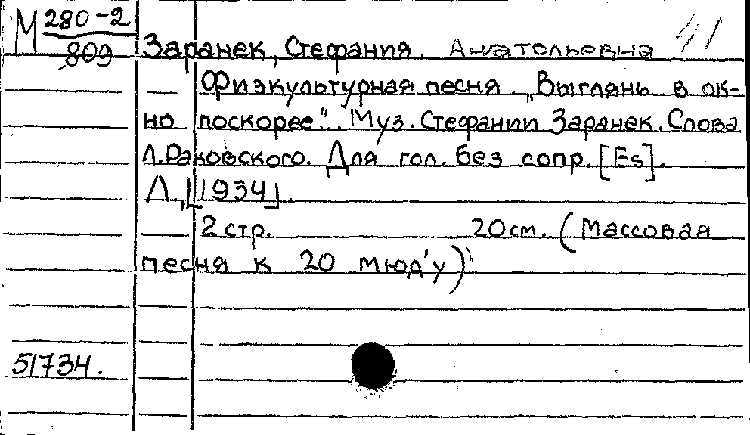 М 280-2
809
41
Заранек, Стефания Анатольевна
Физкультурная песня „Выглянь в ок-
но поскорее". Муз. Стефании Заранек. Слова
Л. Раковского. Для гол. без сопр. [Es].
Л., [1934].
2 стр. 20 см. (Массовая
песня к 20 мюд'у)
51734.